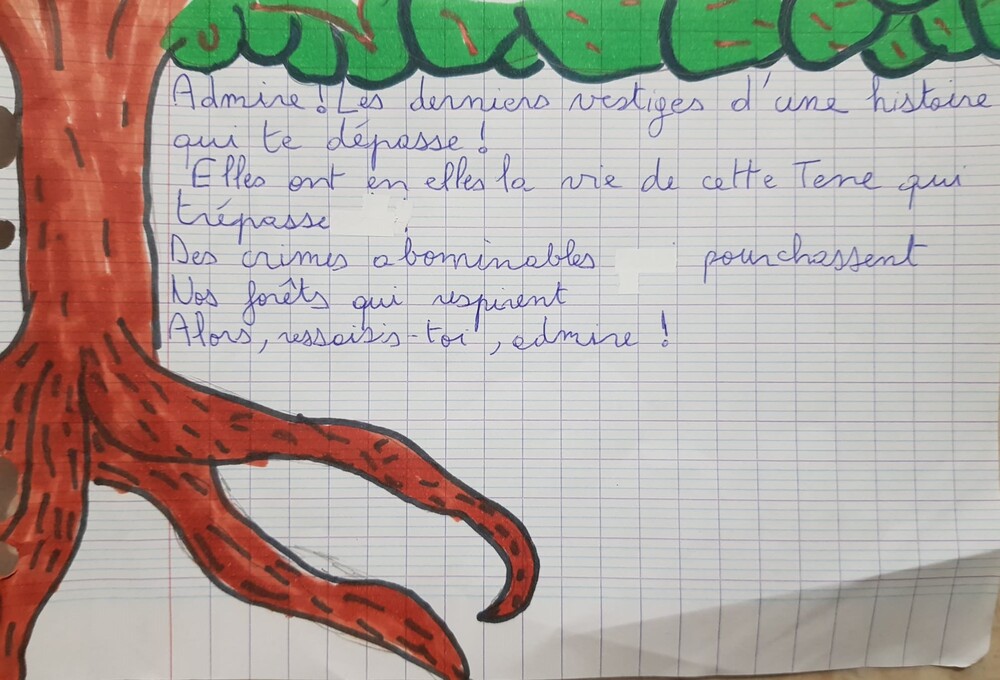 Admire ! Les derniers vestiges d'une histoire
qui te dépasse !
Elles ont en elles la vie de cette Terre qui
trépasse
Des crimes abominables pourchassent
Nos forêts qui respirent
Alors, ressaisis-toi, admire !